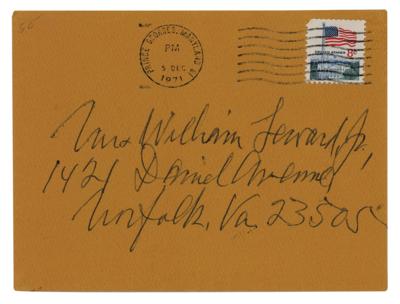 PRINCE GEORGES, MARYLAND
PM
5 DEC
1971
UNITED STATES
8c
Mrs William Seward Jr,
1421 Daniel Avenue
Norfolk, Va 23505